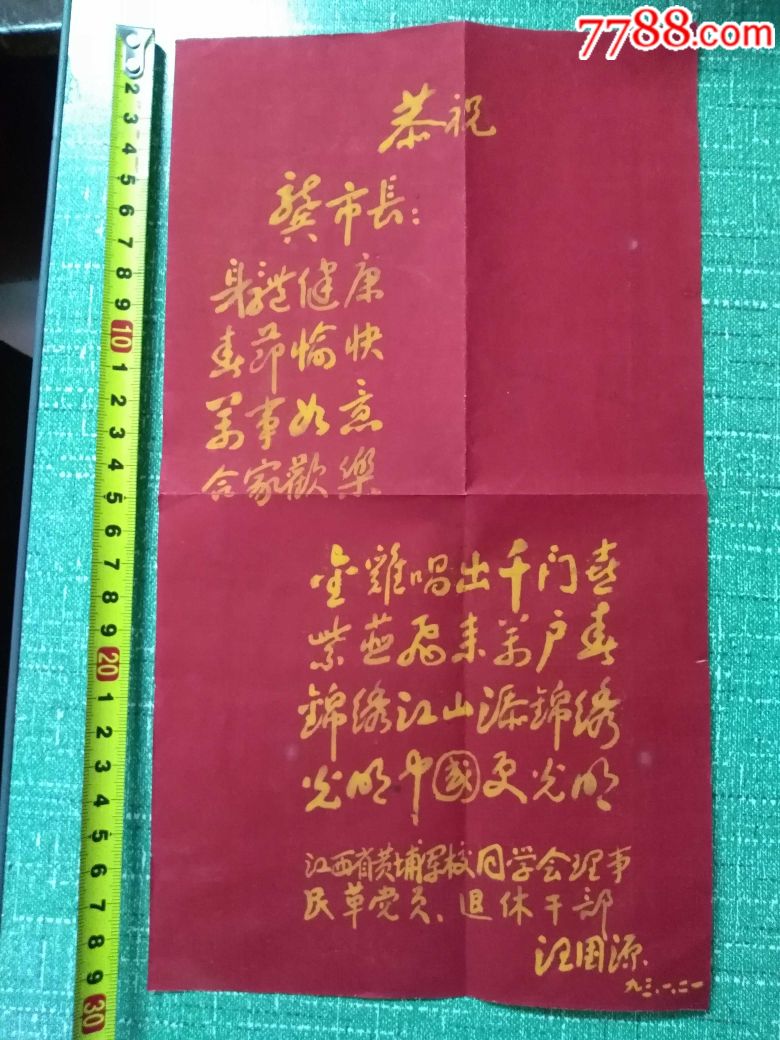 7788.com
恭祝
龔市長：
身體健康
春節愉快
萬事如意
合家歡樂
金雞唱出千门喜
紫燕飛来萬户春
錦绣江山添錦绣
光明中國更光明
江西省黄埔军校同学会理事
民革党员、退休干部
汪国源
九三.一.二一
2 3 4 5 6 7 8 9 10 1 2 3 4 5 6 7 8 9 20 1 2 3 4 5 6 7 8 9 30